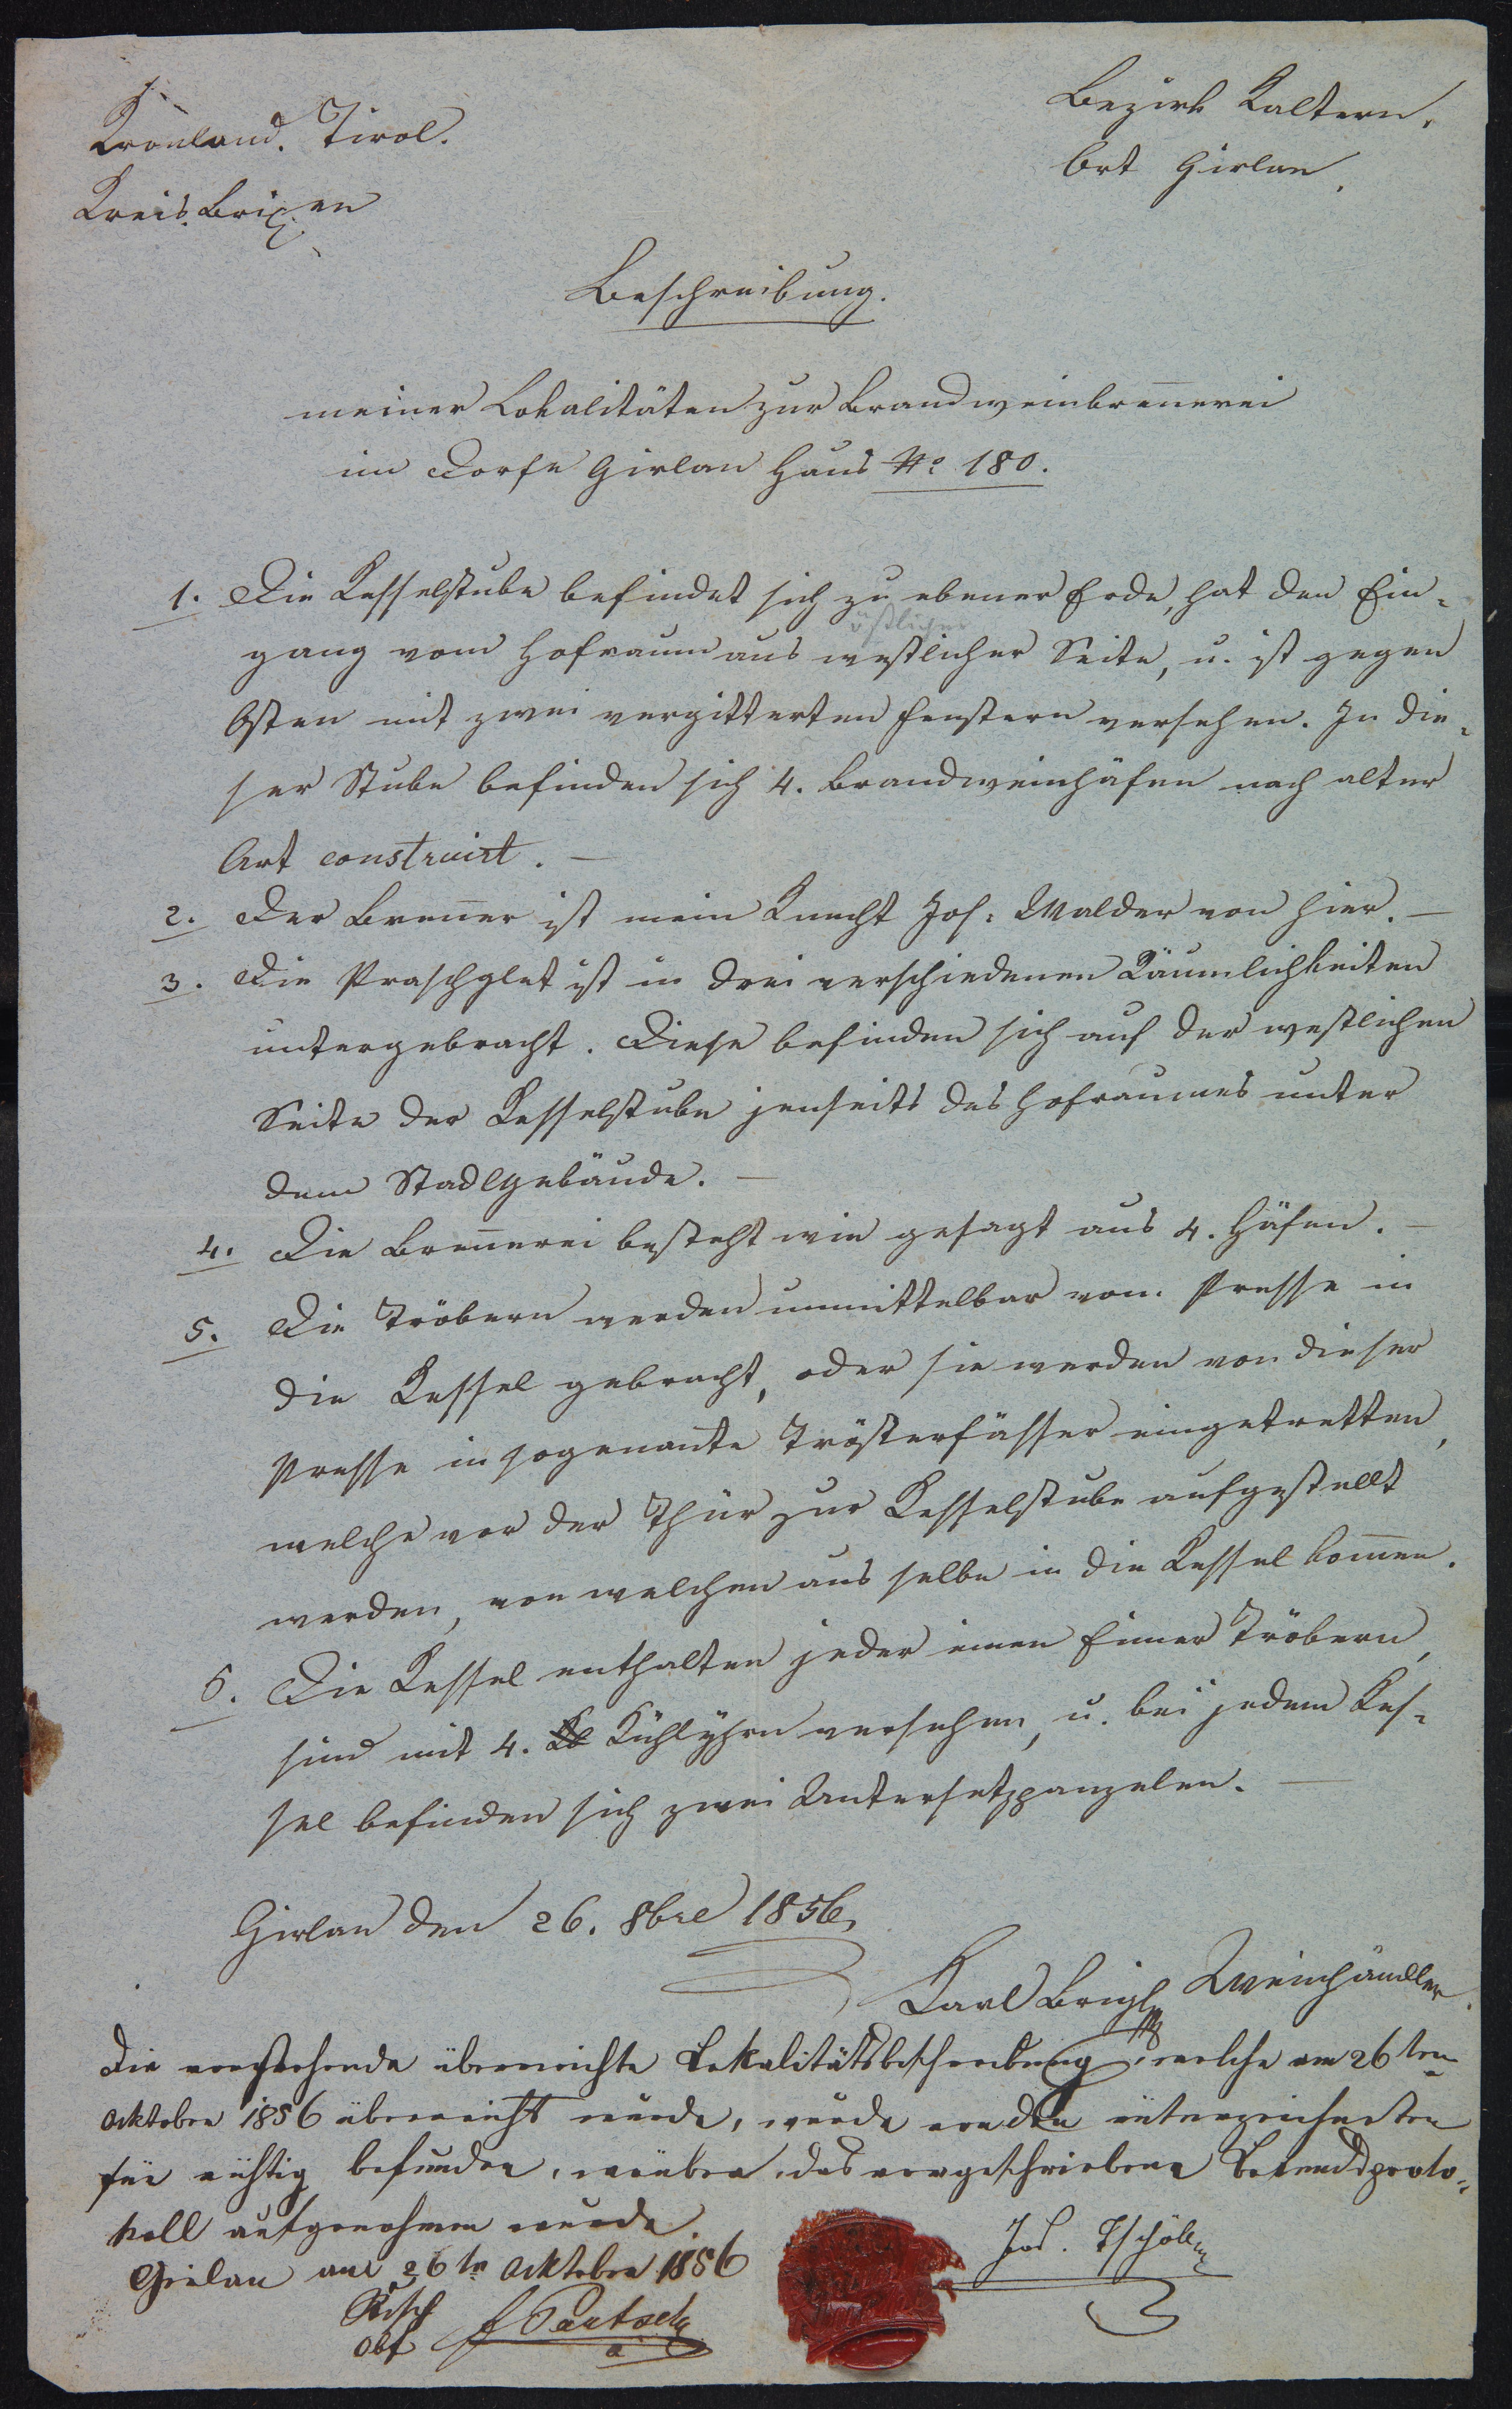 Kronland. Tirol.
Kreis. Brixen
Bezirk Kaltern.
Ort Girlan.
Beschreibung.
meiner Lokalitäten zur Brandweinbrennerei
im Dorfe Girlan Haus No 180.
1. Die Kesselstube befindet sich zu ebener Erde, hat den Ein-
östlicher
gang vom Hofraum aus westlicher Seite, u. ist gegen
Osten mit zwei vergitterten Fenstern versehen. In die-
ser Stube befinden sich 4. Brandweinhäfen nach alter
Art construirt. —
2. Der Brenner ist mein Knecht Jos: Walder von hier. —
3. Die Praschglet ist in drei verschiedenen Räumlichkeiten
untergebracht. Diese befinden sich auf der westlichen
Seite der Kesselstube jenseits des Hofraumes unter
dem Stadlgebäude. —
4. Die Brennerei besteht wie gesagt aus 4. Häfen. —
5. Die Tröbern werden unmittelbar vom Presse in
die Kessel gebracht, oder sie werden von dieser
Presse in sogenante Trösterfässer eingetretten,
welche vor der Thür zur Kesselstube aufgestellt
werden, von welchen aus selbe in die Kessel kommen.
6. Die Kessel enthalten jeder einen Eimer Tröbern,
sind mit 4. Kühlyhrn versehen, u. bei jedem Kes-
sel befinden sich zwei Untersetzpanzelen. —
Girlan den 26. 8bre 1856
Karl Brigl Weinhändler.
Die vorstehende überreichte Lokalitätsbeschreibung, welche am 26ten
Oktober 1856 überreicht wurde, wurde von den unterzeichneten
für richtig befunden, worüber das vorgeschriebene Befundsproto-
koll aufgenohmen wurde.
Girlan am 26tn Oktober 1856
Jos. Tschöll
Obf